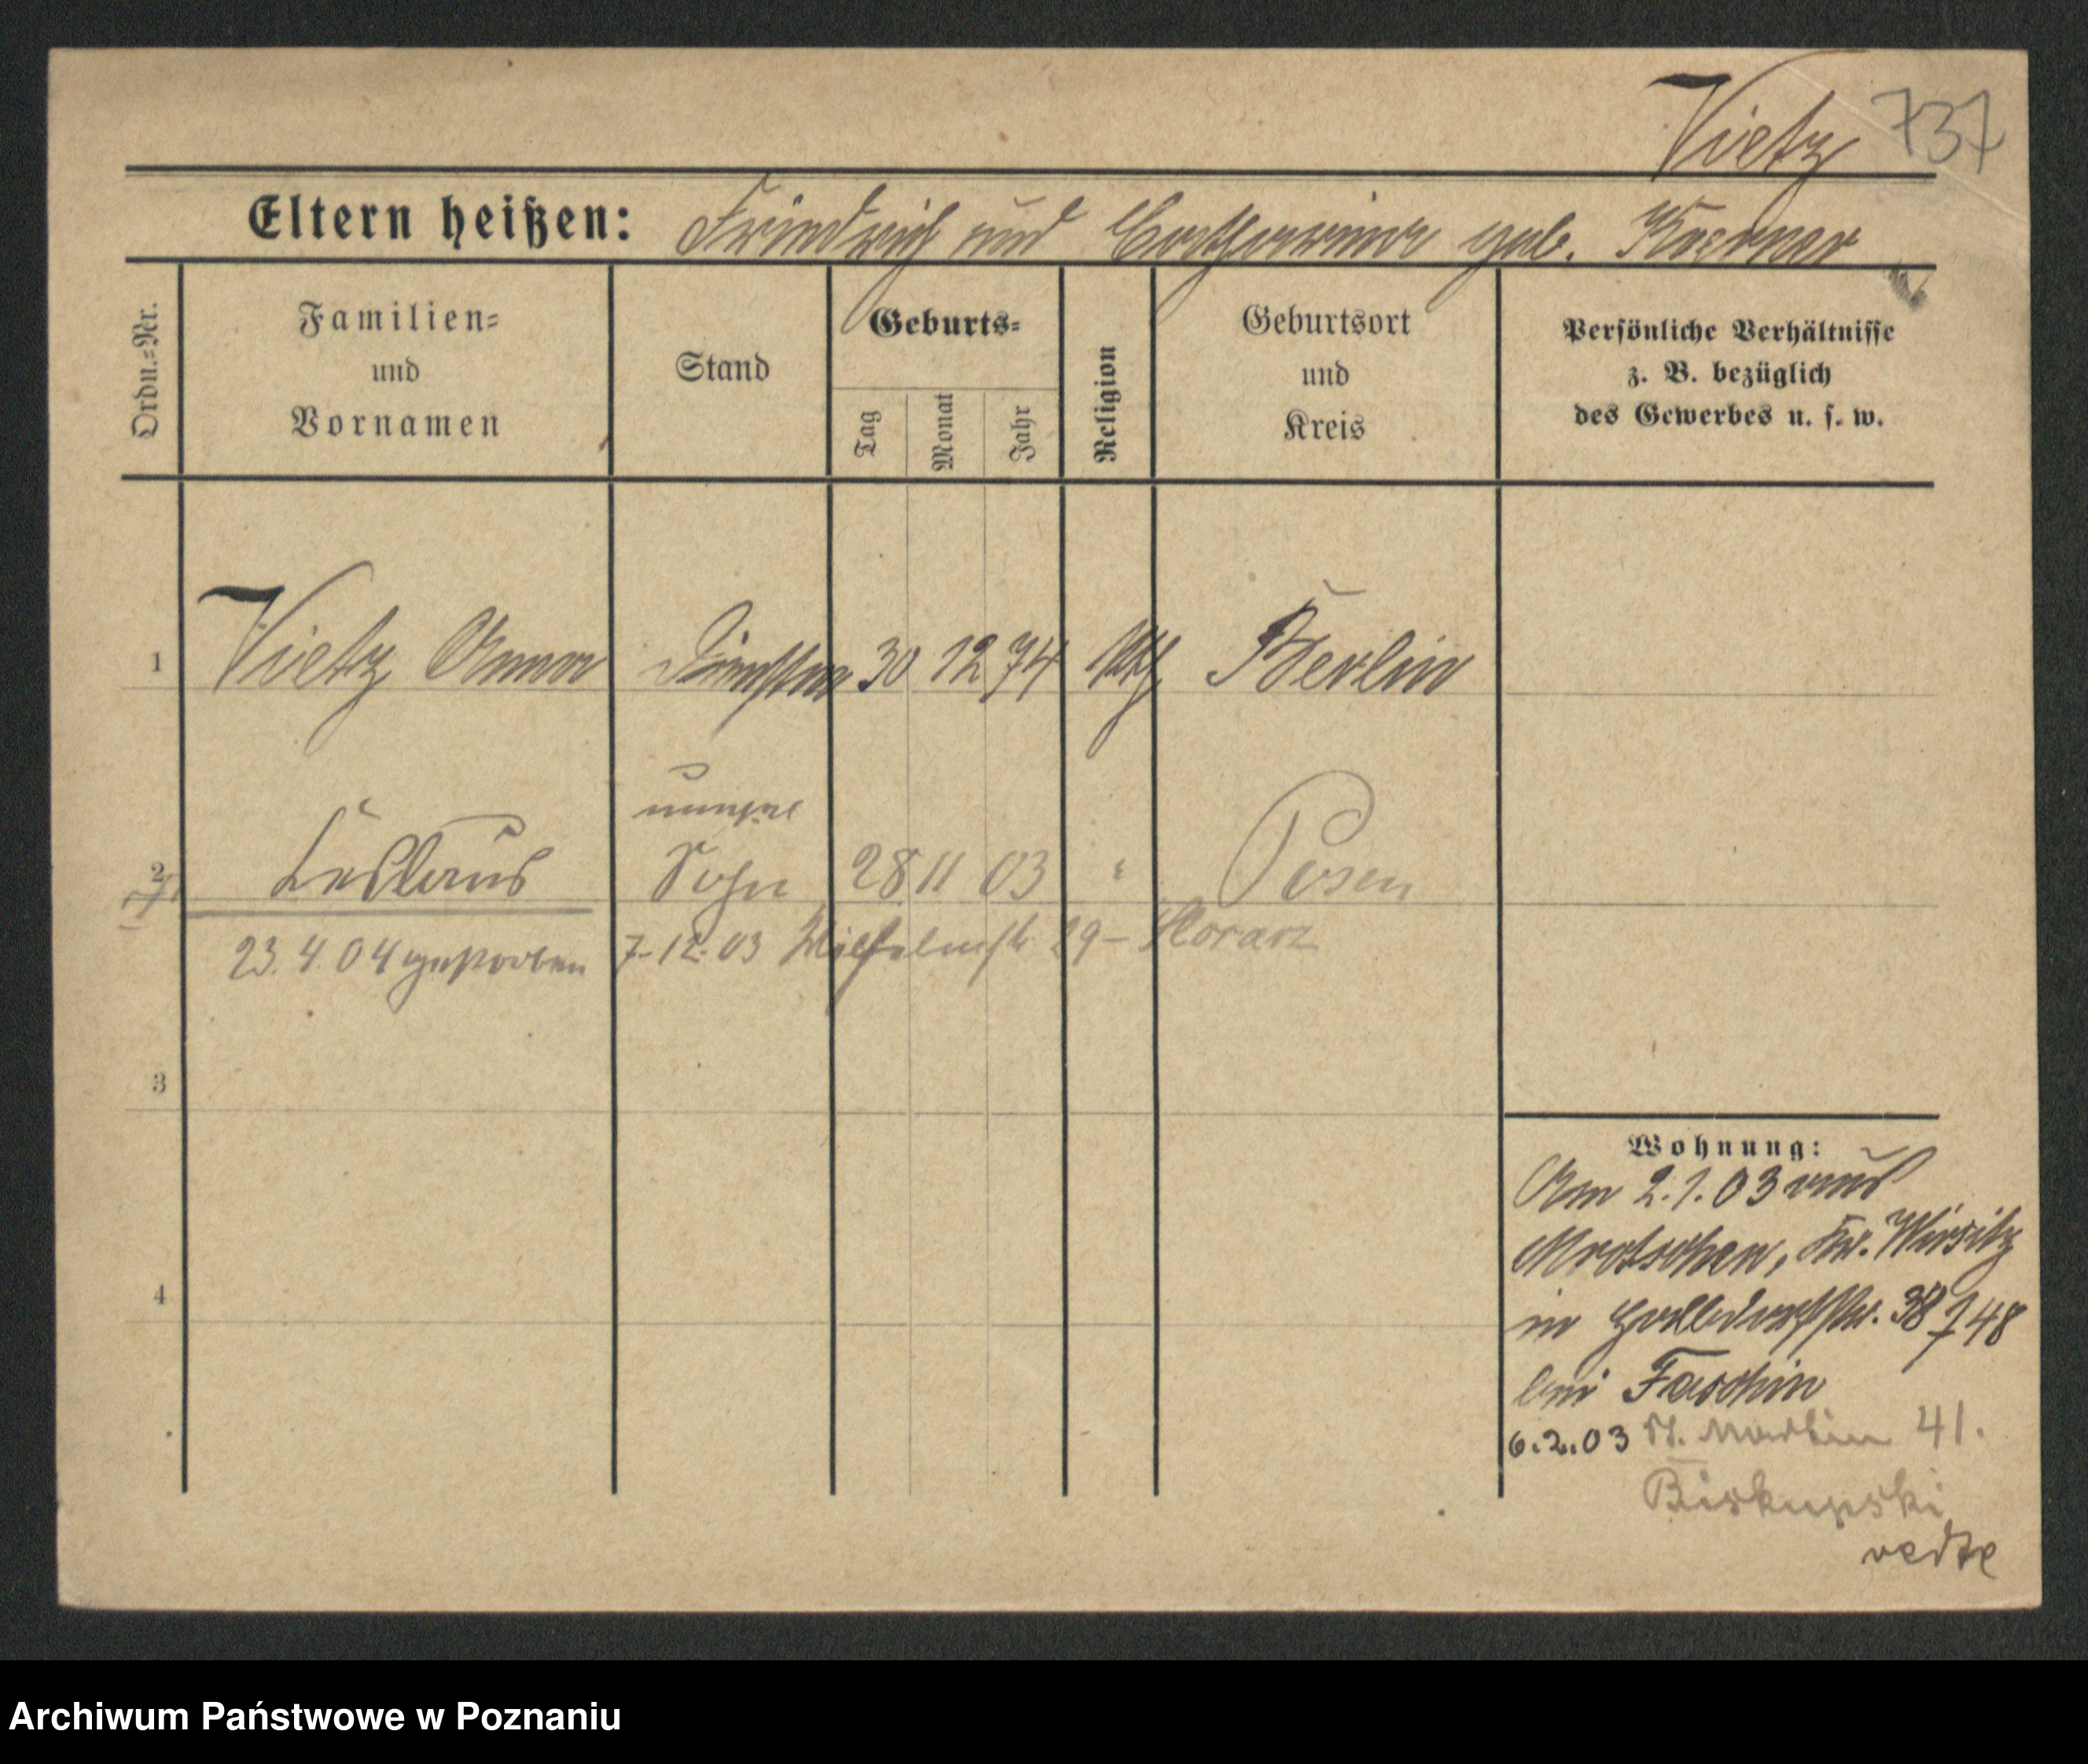 Vietz 737
Eltern heißen: Friedrich und Catharina geb. Koerner
Ordn.=Nr.
Familien=
und
Vornamen
Stand
Geburts=
Tag
Monat
Jahr
Religion
Geburtsort
und
Kreis
Persönliche Verhältnisse
z. B. bezüglich
des Gewerbes u. s. w.
1 Vietz Anna 30 12 74 kth Berlin
unehel
2 Leslaus Sohn 28 11 03 " Posen
23. 4. 04 gestorben 7-12-03 Wilhelmstr. 29 –
3
4
Wohnung:
Am 2.1.03 aus
Mrotschen, Kr. Wirsitz
in 38 748
bei Faschin
6.2.03 St. Martin 41.
Biskupski
Archiwum Państwowe w Poznaniu